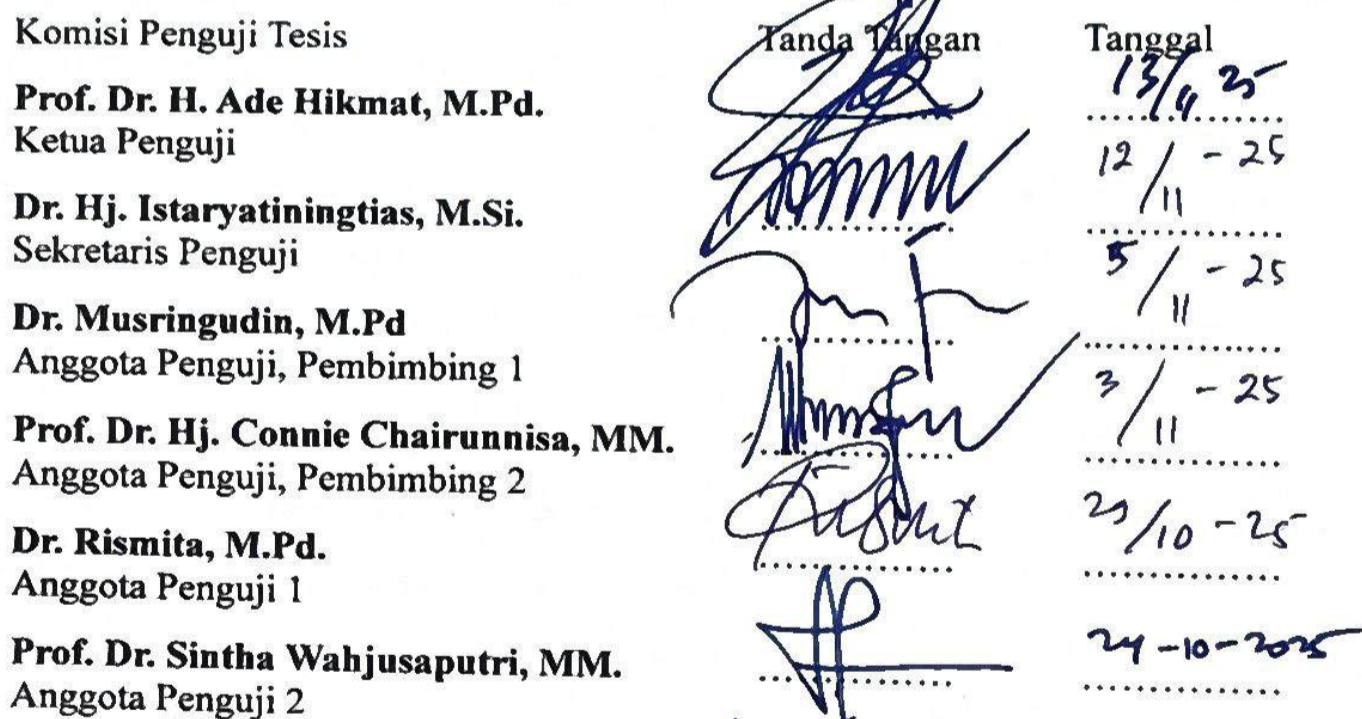 Komisi Penguji Tesis Tanda Tangan Tanggal
Prof. Dr. H. Ade Hikmat, M.Pd. 13/11 25
Ketua Penguji
12/11 - 25
Dr. Hj. Istaryatiningtias, M.Si.
Sekretaris Penguji
5/11 - 25
Dr. Musringudin, M.Pd
Anggota Penguji, Pembimbing 1
3/11 - 25
Prof. Dr. Hj. Connie Chairunnisa, MM.
Anggota Penguji, Pembimbing 2
/10 - 25
Dr. Rismita, M.Pd.
Anggota Penguji 1
Prof. Dr. Sintha Wahjusaputri, MM. 24-10-2025
Anggota Penguji 2